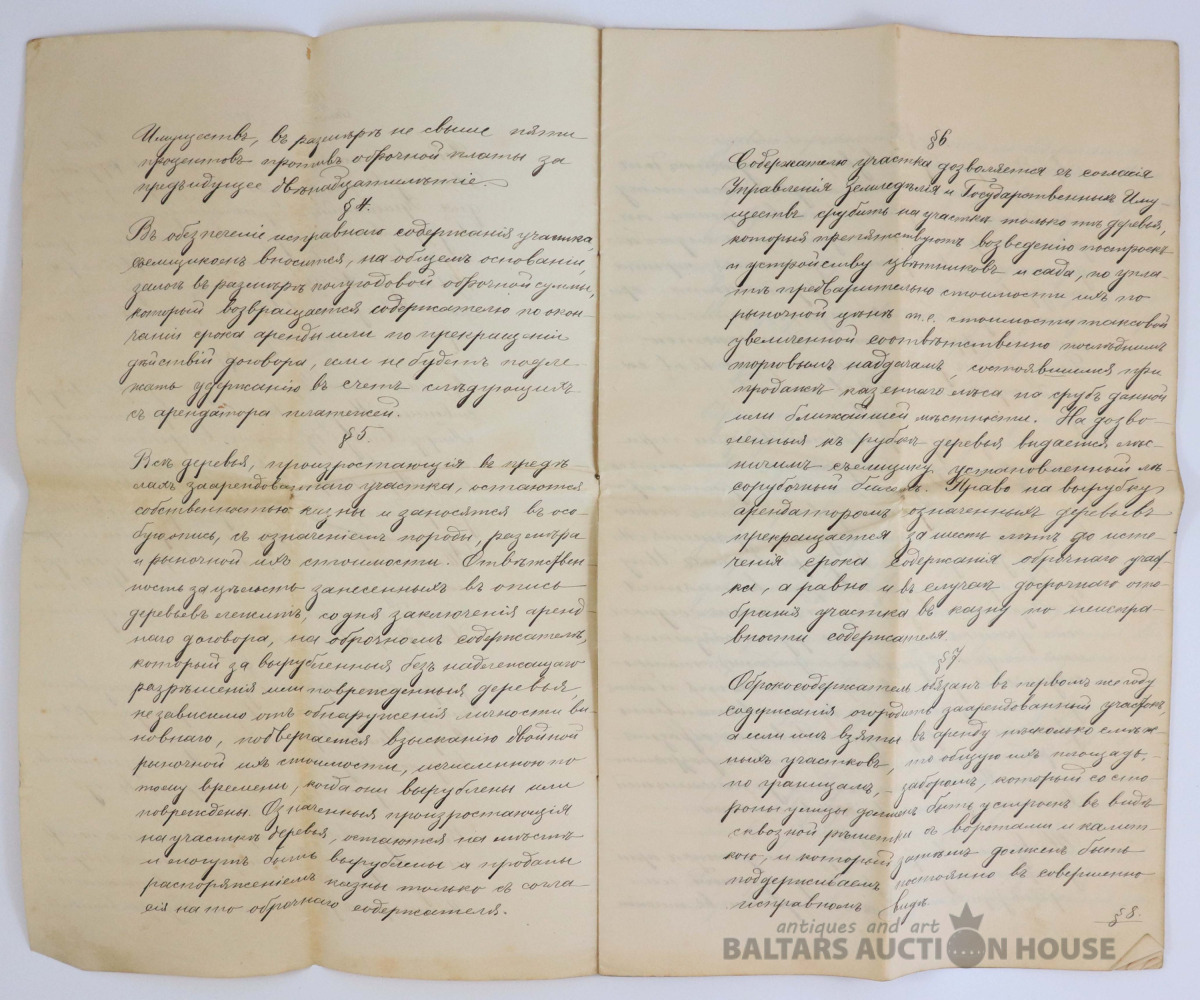 Имуществъ, въ размѣрѣ не свыше пяти
процентовъ противъ оброчной платы за
предъидущее двѣнадцатилѣтіе.
§ 4.
Въ обезпеченіе исправнаго содержанія участка,
съемщикомъ вносится, на общемъ основаніи,
залогъ въ размѣрѣ полугодовой оброчной суммы,
который возвращается содержателю по окон-
чаніи срока аренды или по прекращеніи
дѣйствій договора, если не будетъ подле-
жать удержанію въ счетъ слѣдующихъ
съ арендатора платежей.
§ 5.
Всѣ деревья, произростающія въ предѣ
лахъ заарендованнаго участка, остаются
собственностью казны и заносятся въ осо-
бую опись, съ означеніемъ породы, размѣра
и рыночной ихъ стоимости. Отвѣтствен-
ность за цѣлость занесенныхъ въ опись
деревьевъ лежитъ, со дня заключенія аренд-
наго договора, на оброчномъ содержателѣ,
который за вырубленныя безъ надлежащаго
разрѣшенія или поврежденныя деревья,
независимо отъ обнаруженія личности ви-
новнаго, подвергается взысканію двойной
рыночной ихъ стоимости, исчисленною по
тому времени, когда они вырублены или
повреждены. Означенныя произростающія
на участкѣ деревья, остаются на мѣстѣ
и могутъ быть вырублены и проданы
распоряженіемъ казны только съ согла-
сія на то оброчнаго содержателя.
§ 6
Содержателю участка дозволяется съ согласія
Управленія Земледѣлія и Государственныхъ Иму-
ществъ срубить на участкѣ только тѣ деревья,
которыя препятствуютъ возведенію построекъ
и устройству цвѣтниковъ и сада, по упла-
тѣ предварительно стоимости ихъ по
рыночной цѣнѣ т.е. стоимости таксовой
увеличенной соотвѣтственно послѣднимъ
торговымъ наддачамъ, состоявшимся при
продажѣ казеннаго лѣса на срубъ данной
или ближайшей мѣстности. На дозво-
ленныя къ рубкѣ деревья выдается лѣс-
ничимъ съемщику установленный лѣ-
сорубочный билетъ. Право на вырубку
арендаторомъ означенныхъ деревьевъ
прекращается за шесть лѣтъ до исте-
ченія срока содержанія оброчнаго участ-
ка, а равно и въ случаѣ досрочнаго ото-
бранія участка въ казну по неиспра-
вности содержателя.
§ 7
Оброкосодержатель обязанъ въ первомъ же году
содержанія огородить заарендованный участокъ,
а если имъ взяты въ аренду нѣсколько смеж-
ныхъ участковъ, то общую ихъ площадь,-
по границамъ,- заборомъ, который со сто-
роны улицы долженъ быть устроенъ въ видѣ
сквозной рѣшетки съ воротами и калит-
кою, и который затѣмъ долженъ быть
поддерживаемъ постоянно въ совершенно
исправномъ видѣ.
§ 8.
antiques and art
BALTARS AUCTION HOUSE